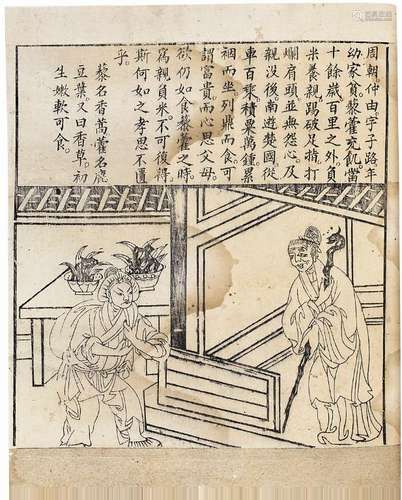 周朝仲由字子路年
幼家貧食藜藿充飢嘗
十餘歲百里之外負
米養親踢破足指打
爛肩頭並無怨心及
親没後南遊楚國從
車百乘積粟萬鍾累
裀而坐列鼎而食可
謂富貴而心思父母
欲仍如食藜藿之時
爲親負米不可復得
斯何如之孝思不匱
乎
藜名香蒿藿名鹿
豆葉又曰香草初
生嫩軟可食